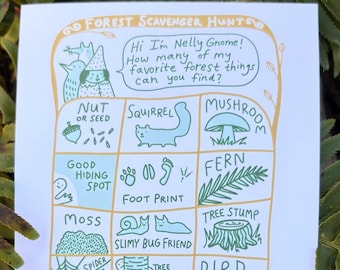 FOREST SCAVENGER HUNT
Hi I'm Nelly Gnome!
How many of my
favorite forest things
can you find?
NUT
OR SEED
SQUIRREL
MUSHROOM
GOOD
HIDING
SPOT
FOOT PRINT
FERN
MOSS
SLIMY BUG FRIEND
TREE STUMP
SPIDER
TREE
BIRD